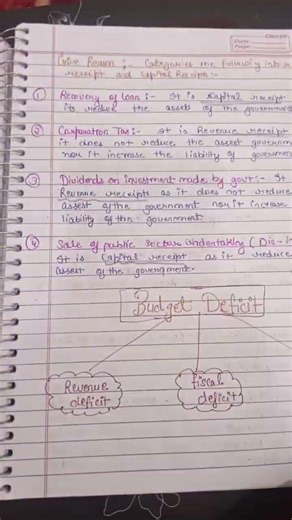 Date
Page
Give Reason :- Categories the following into
receipt and Capital Receipts:-
① Recovery of loan :- It is capital receipt
its reduce the assets of the government
② Corporation Tax :- It is Revenue receipt
it does not reduce the asset governm
nor it increase the liability of governm
③ Dividends on investment made by govt :- It
Revenue receipts as it does not reduce
asset of the government nor it increase
liability of the government.
④ Sale of public sector undertaking (Dis-in
It is Capital receipt as it reduce
asset of the government.
Budget Deficit
Revenue deficit
fiscal deficit